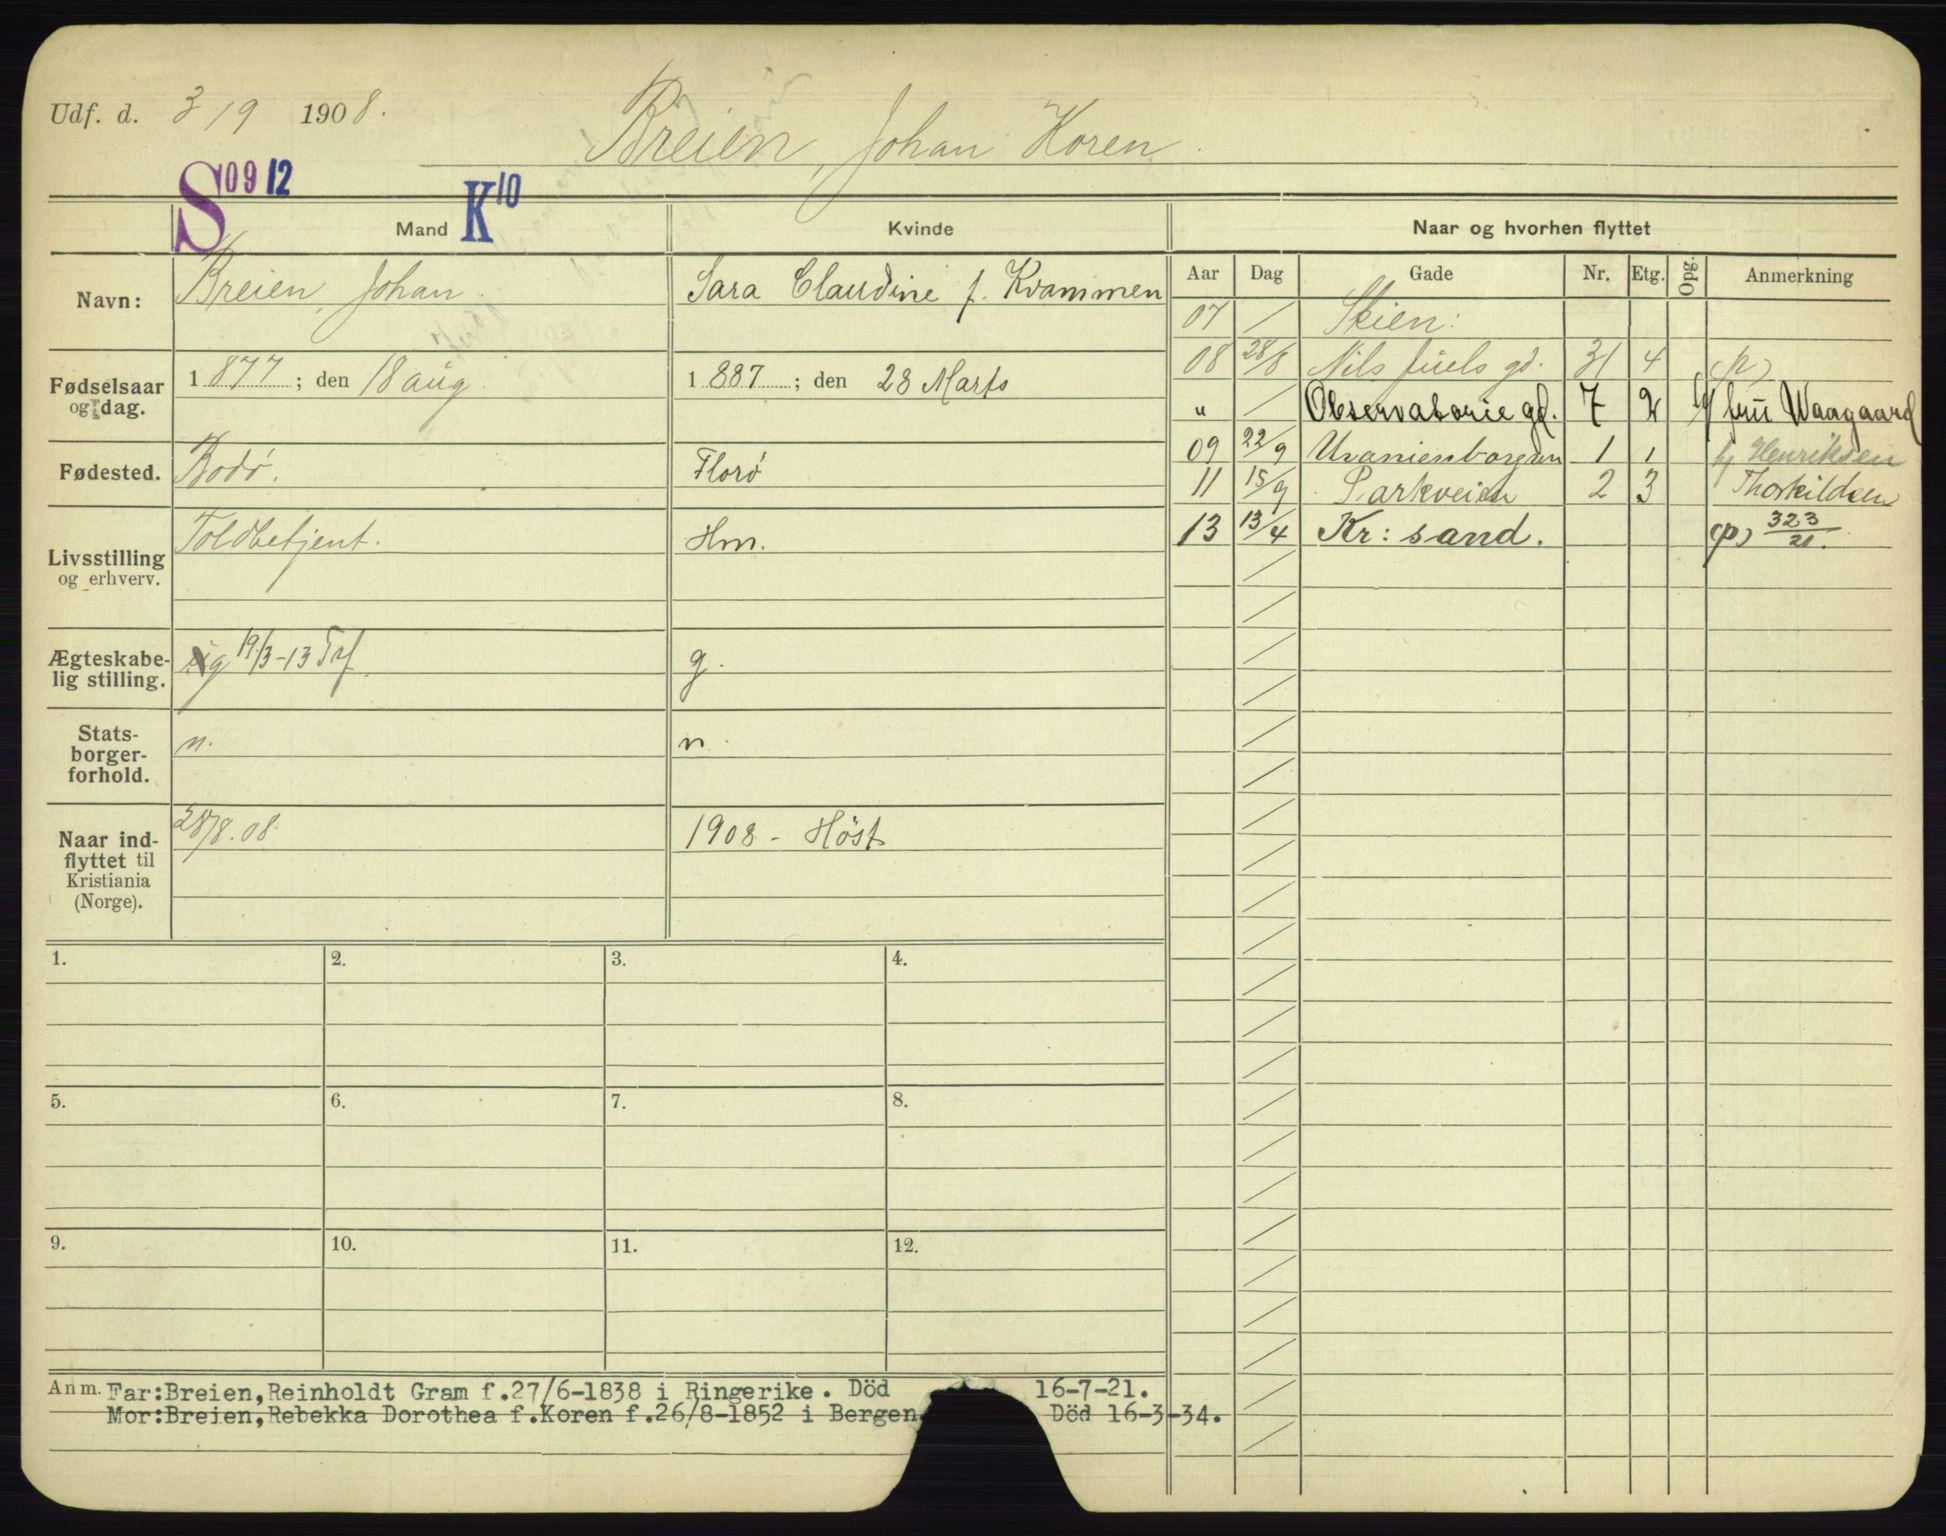 Udf. d. 3/9 1908.
Breien, Johan Koren.
S 09 12
K 10
Mand Kvinde Naar og hvorhen flyttet
Navn: Breien, Johan. Sara Claudine f. Kvammen
Aar Dag Gade Nr. Etg. Opg. Anmerkning
07 Skien:
Fødselsaar og dag. 1877; den 18 aug. 1887; den 28 Marts
08 28/8 Nils Juels gd. 31 4 (p)
" Observatorie gd. 7 2 fru Waagaard
Fødested. Bodø. Florø
09 22/9 Uranienborgvn 1 1 Henriksen
11 15/9 Parkveien 2 3 Thorkildsen
Livsstilling og erhverv. Toldbetjent. Hm.
13 13/4 Kr: sand. (p) 323/21.
Ægteskabe-
lig stilling. g 19/3-13 g.
Stats-
borger-
forhold. n. n.
Naar ind-
flyttet til
Kristiania
(Norge). 28/8.08. 1908 - Høst
1. 2. 3. 4.
5. 6. 7. 8.
9. 10. 11. 12.
Anm. Far:Breien,Reinholdt Gram f.27/6-1838 i Ringerike. Död 16-7-21.
Mor:Breien,Rebekka Dorothea f.Koren f.26/8-1852 i Bergen. Död 16-3-34.